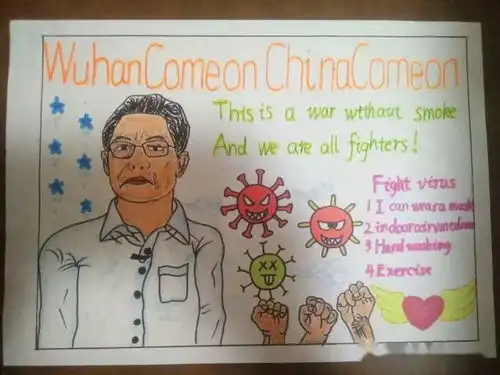 Wuhan Comeon China Comeon
This is a war without smoke
And we are all fighters!
Fight virus
1 I can wear a mask
2 indoor air
3 Hand washing
4 Exercise